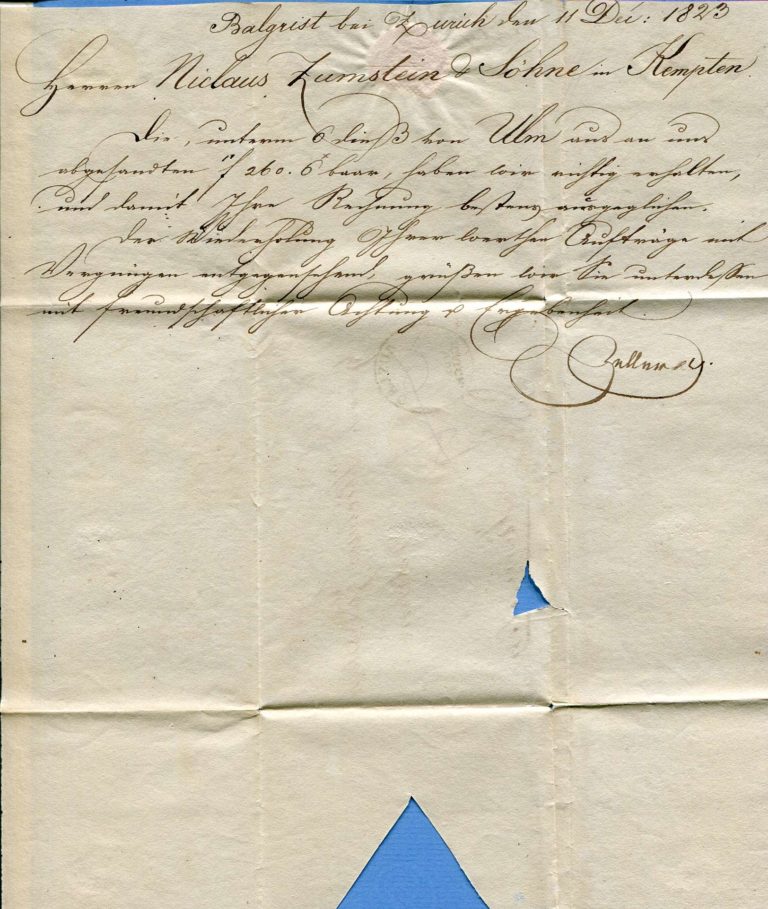 Balgrist bei Zurich den 11 Dec: 1823
Herren Niclaus Zumstein & Söhne in Kempten
Die, unterm 6 dieß von Ulm aus an uns
abgesandten f 260. 6 baar, haben wir richtig erhalten,
und damit Ihre Rechnung bestens ausgeglichen.
Der Wiederholung Ihrer werthen Aufträge mit
Vergnügen entgegensehend, grüßen wir Sie unterdessen
mit freundschaftlicher Achtung & Ergebenheit.